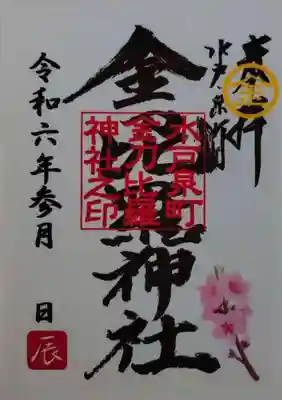 奉拝
金
水戸泉町
金刀比羅神社
水戸泉町
金刀比羅
神社之印
令和六年参月 日
辰